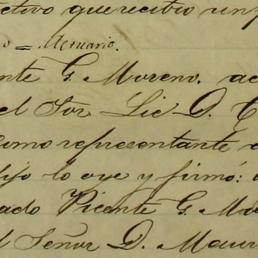 ctivo que recibio un p
o = Actuario.
nte G. Moreno. ac
el Sor Lic D. C
omo representante d
ijo lo oye y firmó: d
ado Vicente G. Mo
l Señor D. Maur